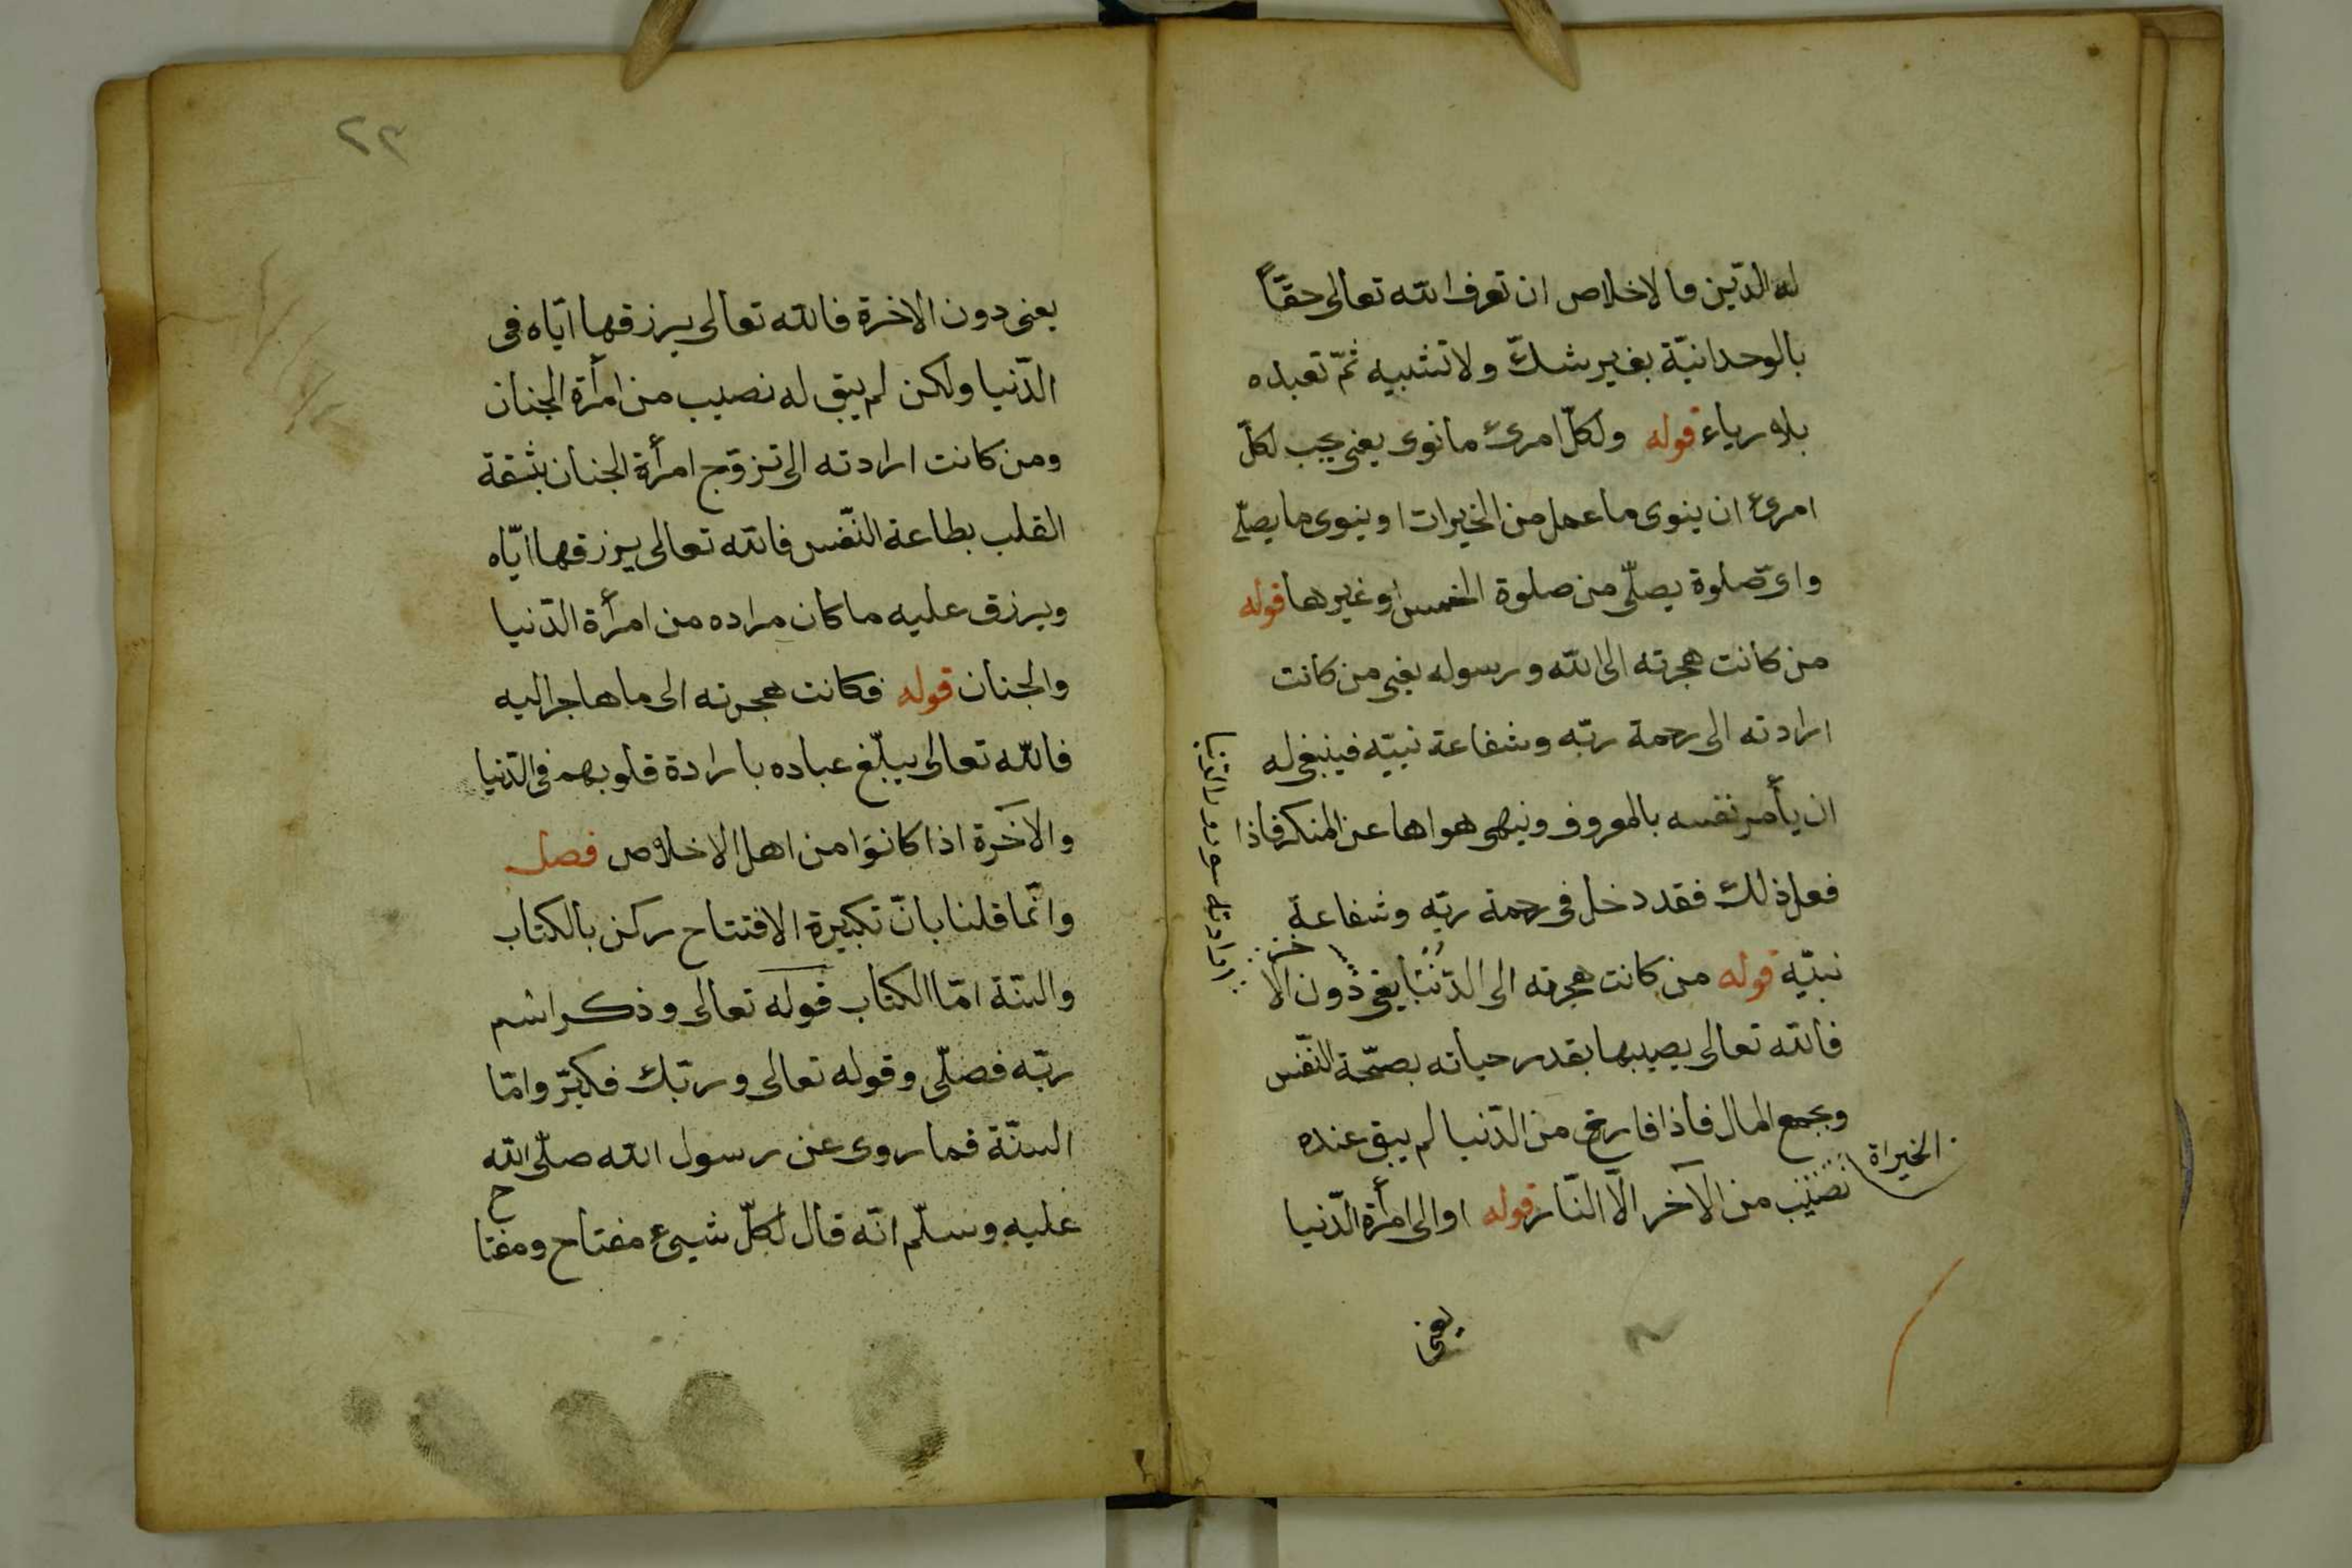 له الدّين فالاخلاص ان تعرف الله تعالى حقّاً
بالوحدانيّة بغير شكّ ولا تشبيه ثمّ تعبده
بلا رياء قوله ولكلّ امرئ ما نوى يعنى يجب لكلّ
امرئ ان ينوى ما عمل من الخيرات او ينوى ما يصلّى
واىّ صلوة يصلّى من صلوة الخمس او غيرها قوله
من كانت هجرته الى الله ورسوله يعنى من كانت
ارادته الى رحمة ربّه وشفاعة نبيّه فينبغى له
ان يأمر نفسه بالمعروف وينهى هواها عن المنكر فاذا
فعل ذلك فقد دخل فى رحمة ربّه وشفاعة
نبيّه قوله من كانت هجرته الى الدّنيا يعنى دون الاخرة
فالله تعالى يصيبها بقدر حياته بصحّة النّفس
وبجمع المال فاذا فارغ من الدّنيا لم يبق عنده
نصيب من الآخر الّا النّار قوله او الى امرأة الدّنيا
الخيراة
يعنى
٢٣
يعنى دون الاخرة فالله تعالى يرزقها ايّاه فى
الدّنيا ولكن لم يبق له نصيب من امرأة الجنان
ومن كانت ارادته الى تزوّج امرأة الجنان بثقة
القلب بطاعة النّفس فالله تعالى يرزقها ايّاه
ويرزق عليه ما كان مراده من امرأة الدّنيا
والجنان قوله فكانت هجرته الى ما هاجر اليه
فالله تعالى يبلّغ عباده بارادة قلوبهم فى الدّنيا
والآخرة اذا كانوا من اهل الاخلاص فصل
وانّما قلنا بانّ تكبيرة الافتتاح ركن بالكتاب
والسنّة امّا الكتاب قوله تعالى وذكر اسم
ربّه فصلّى وقوله تعالى وربّك فكبّر وامّا
السنّة فما روى عن رسول الله صلّى الله
عليه وسلّم انّه قال لكلّ شيىء مفتاح ومفتاح